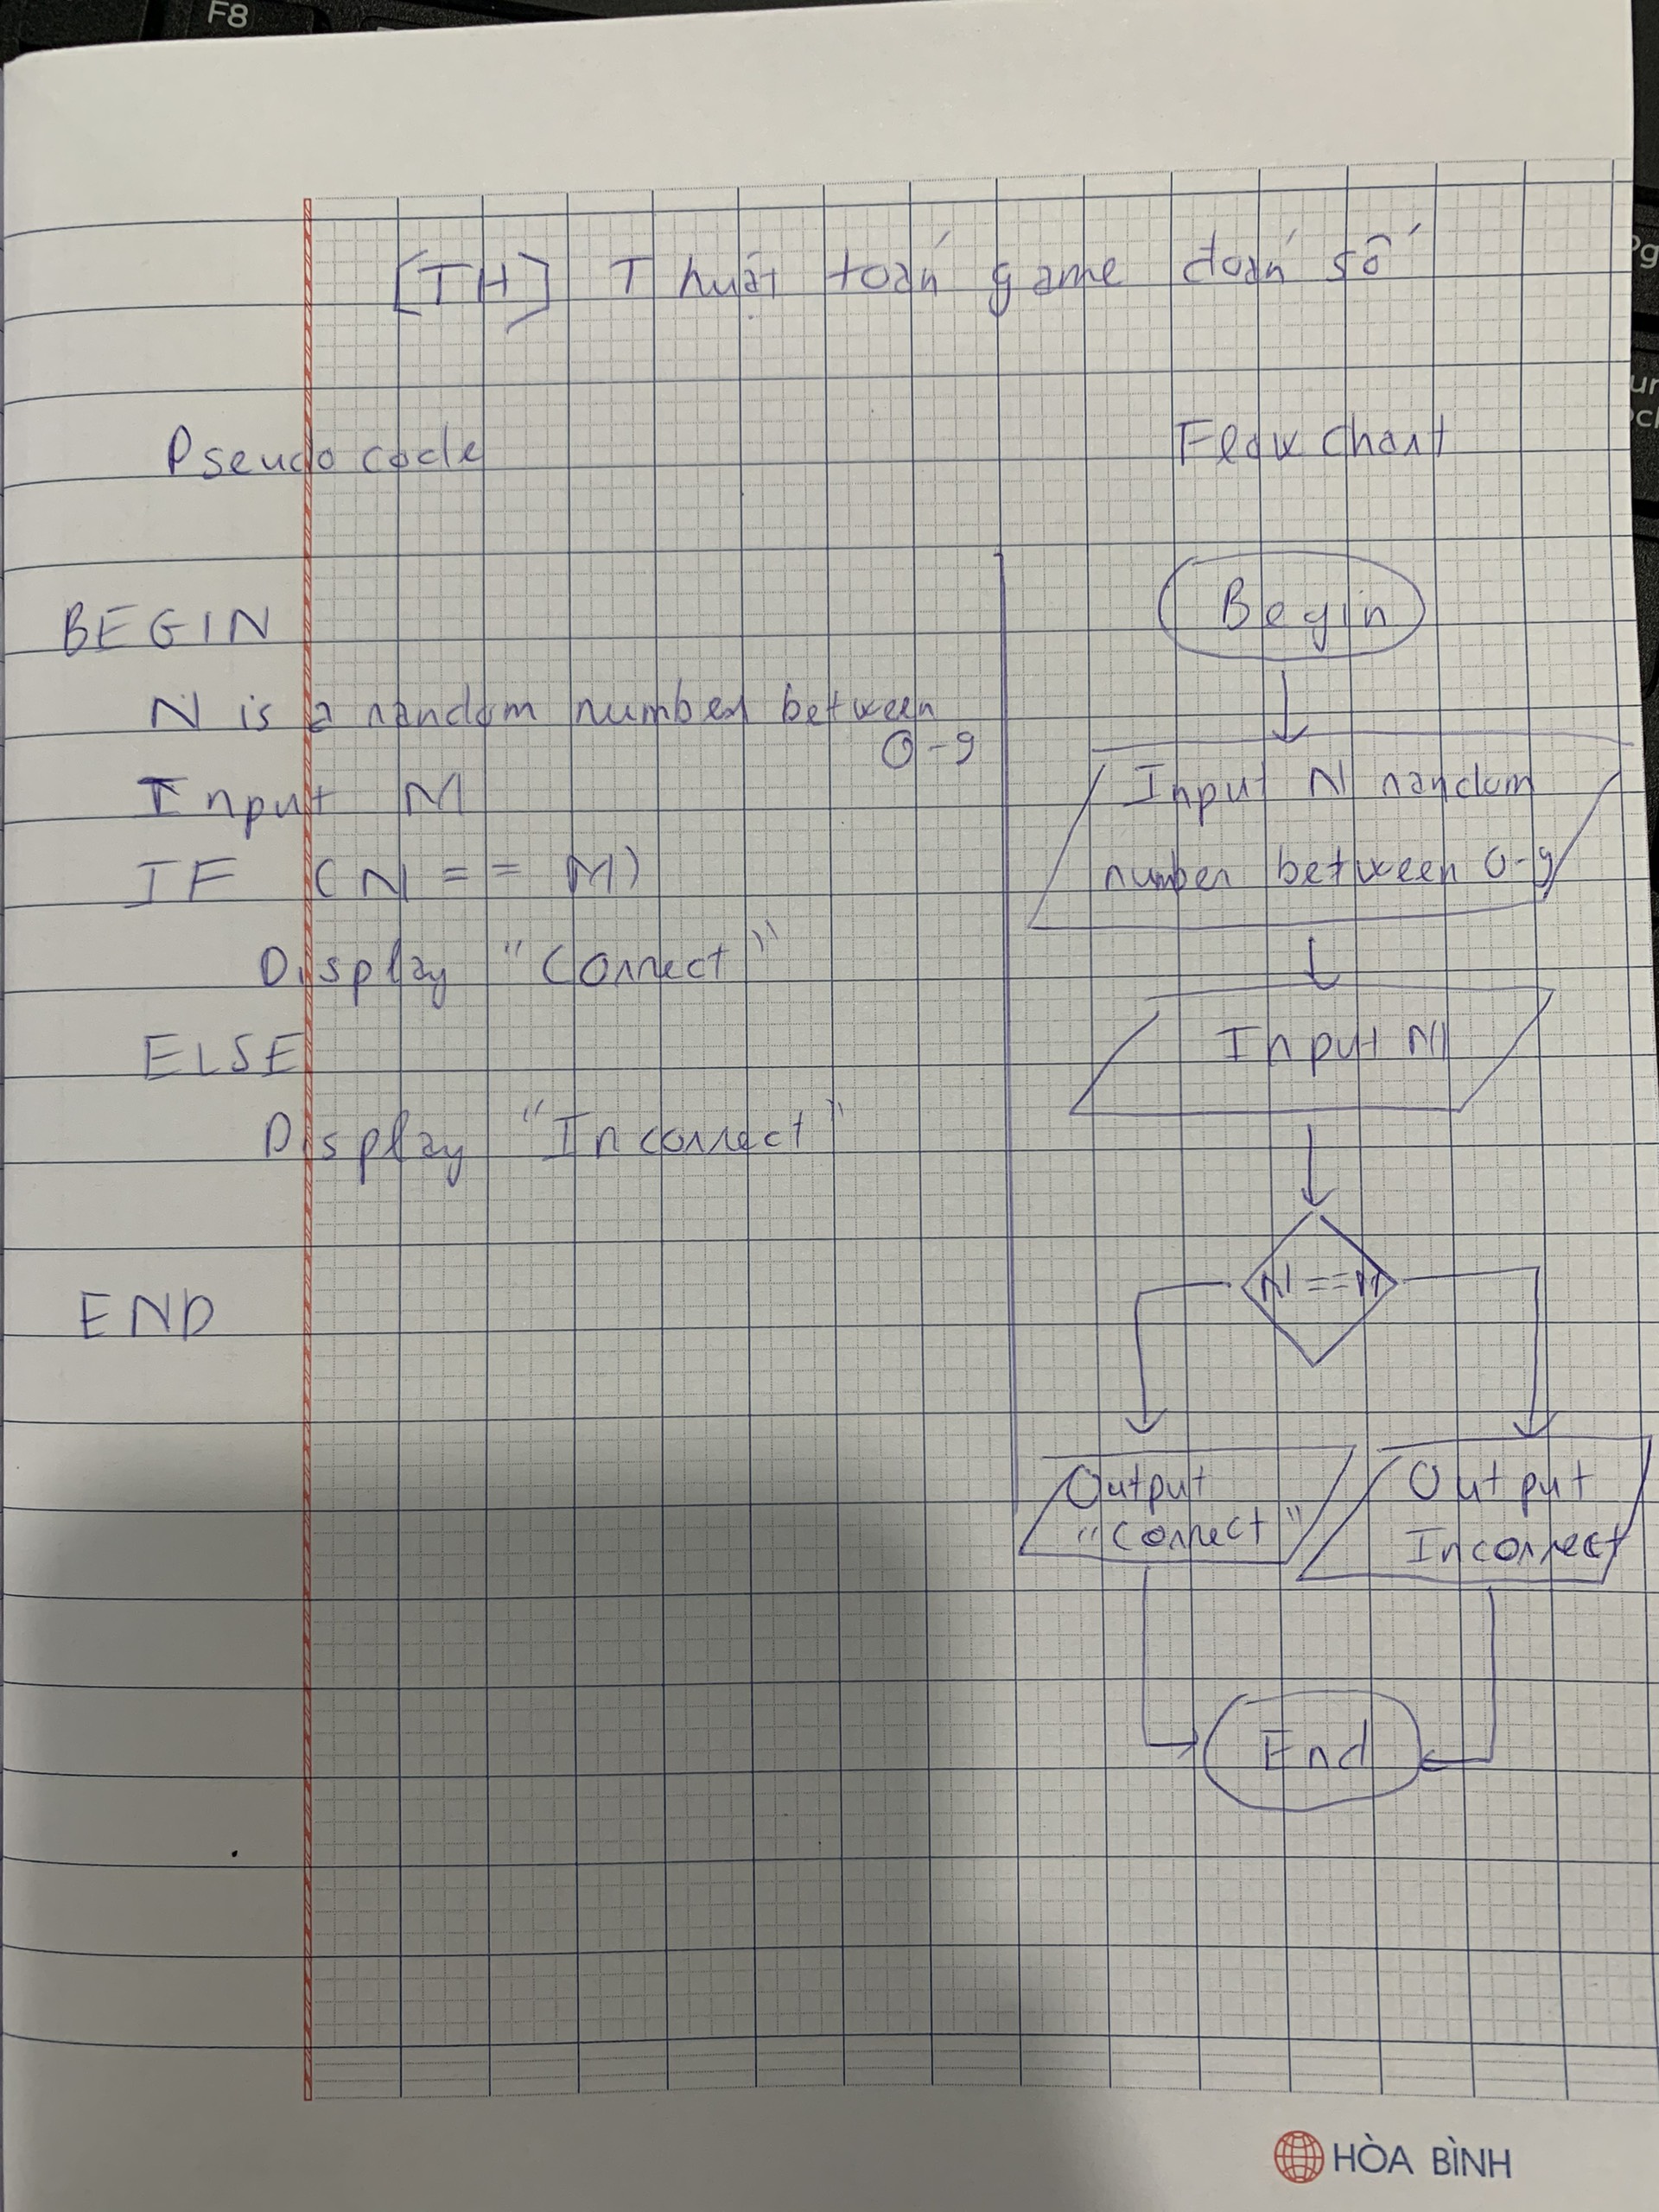 F8
[TH] Thuật toán game đoán số
Pseudo code
BEGIN
N is a random number between
0-9
Input M
IF (N == M)
Display "Correct"
ELSE
Display "Incorrect"
END
Flow chart
Begin
Input N random
number between 0-9
Input M
N==M
Output
"Correct"
Output
Incorrect
End
HÒA BÌNH